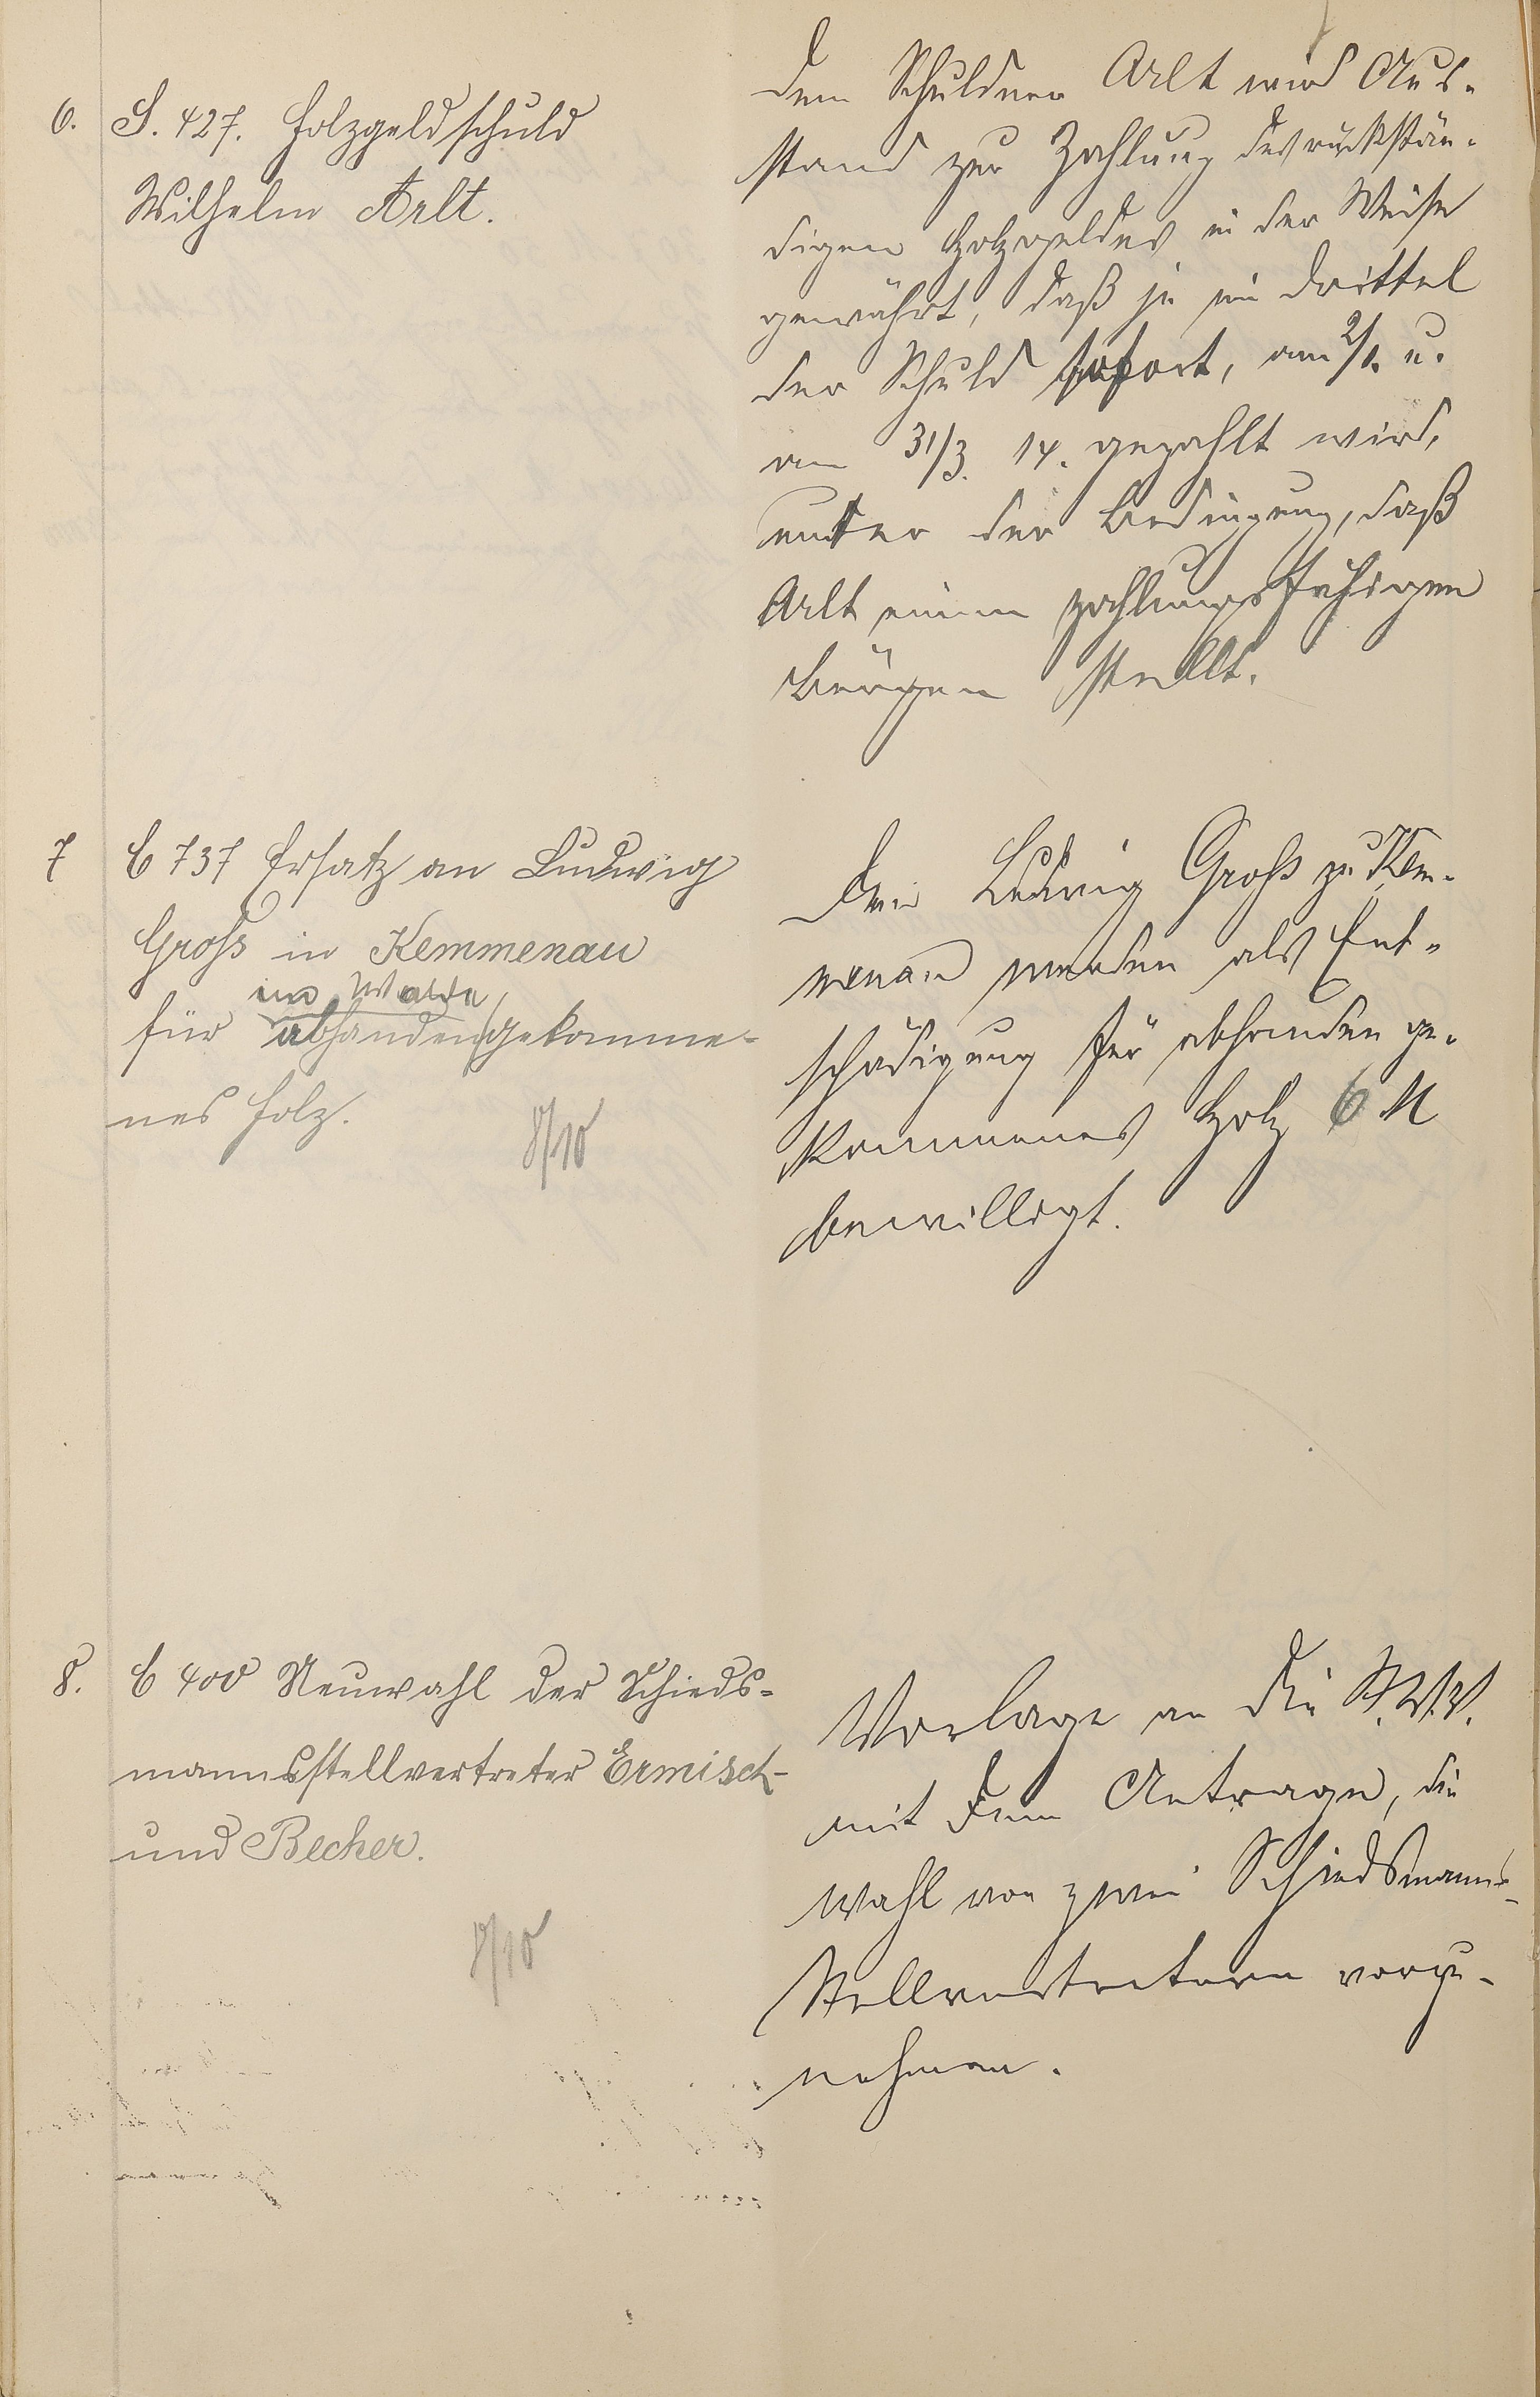 6. S. 427. Holzgeldschuld
Wilhelm Arlt.
Dem Schuldner Arlt wird Aus-
stand zur Zahlung des rückstän-
digen Holzgeldes in der Weise
gewährt, daß je ein Drittel
der Schuld sofort, am 2/1. u.
am 31/3. 14. gezahlt wird,
unter der Bedingung, daß
Arlt einen zahlungsfähigen
Bürgen stellt.
7 C 737 Ersatz an Ludwig
Gross in Kemmenau
im Walde
für abhanden gekomme-
nes Holz.
8/10
Dem Ludwig Groß zu Kem-
menau werden als Ent-
schädigung für abhanden ge-
kommenes Holz 6 M
bewilligt.
8. C 400 Neuwahl der Schieds-
mannsstellvertreter Ermisch
und Becher.
8/10
Vorlage an die St.V.V.
mit dem Antrage, die
Wahl von zwei Schiedsmanns-
Stellvertretern vorzu-
nehmen.